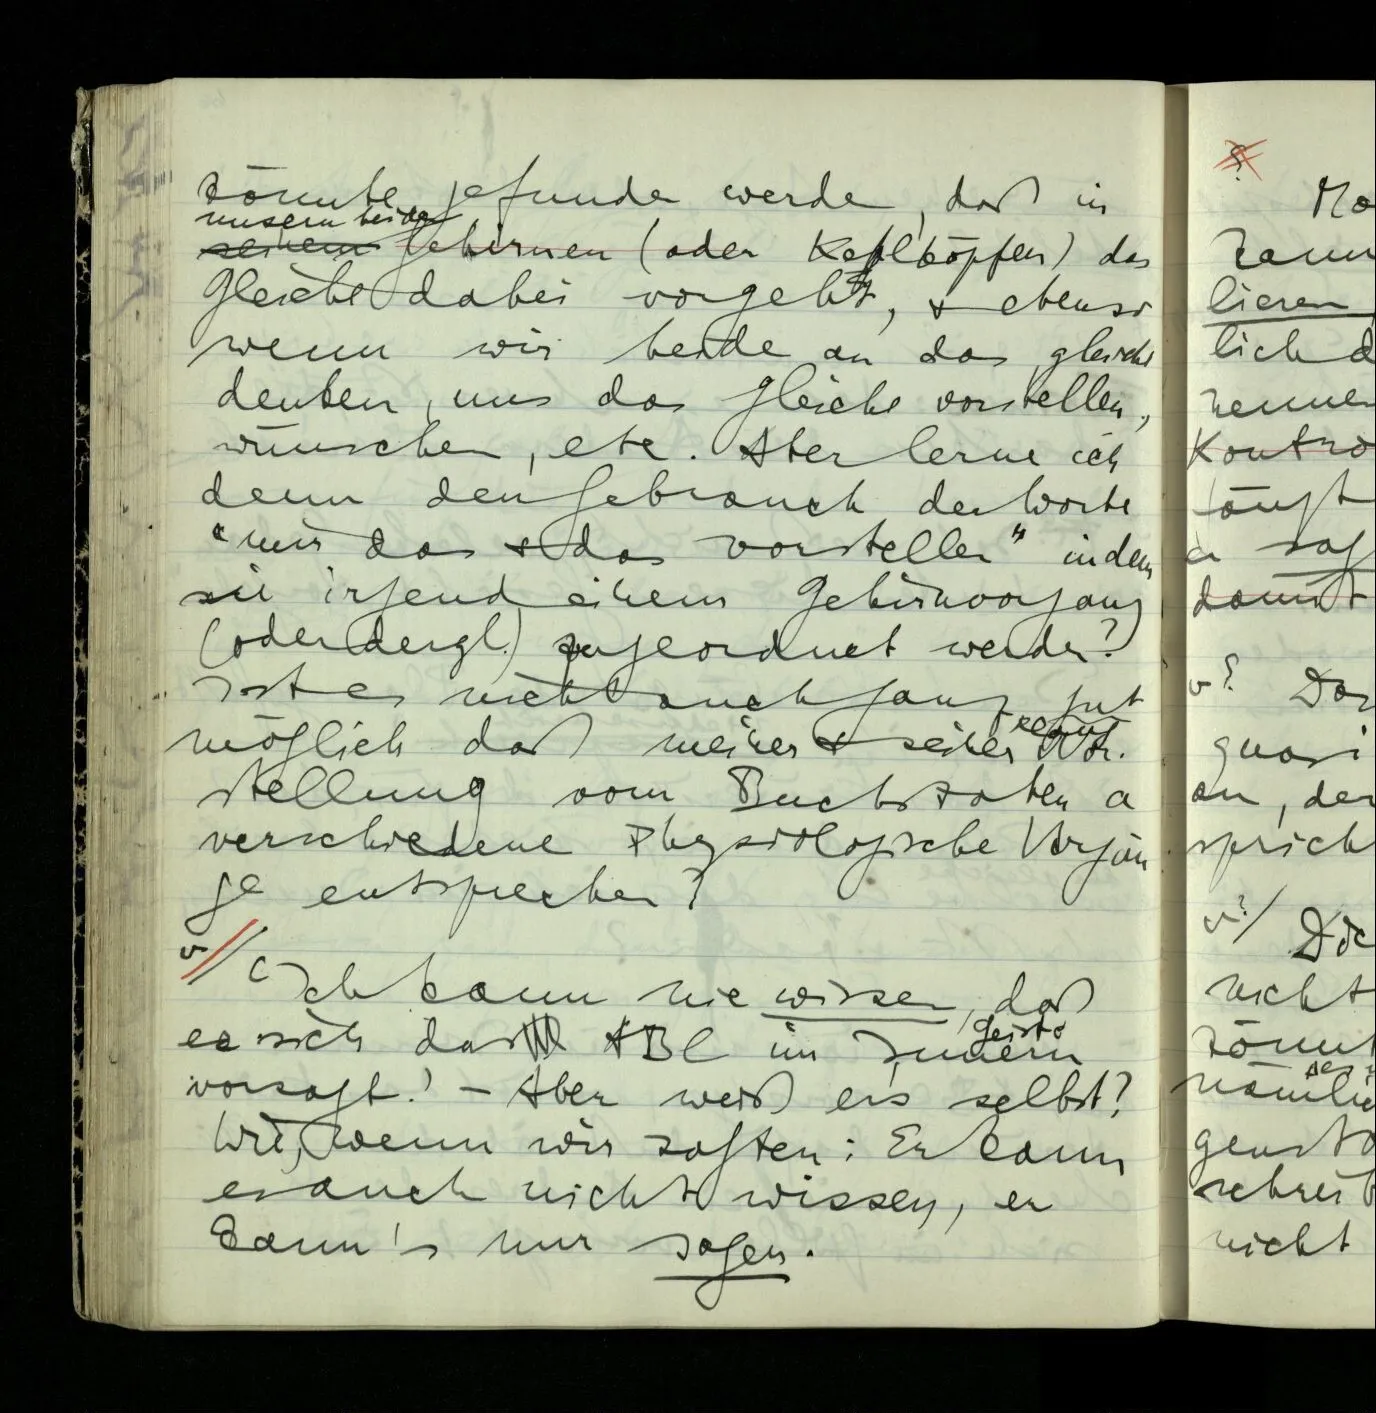 könnte gefunden werden, daß in
unsern beiden
seinem Gehirnen (oder Kehlköpfen) das
Gleiche dabei vorgeht, & ebenso
wenn wir beide an das gleiche
denken, uns das Gleiche vorstellen,
wünschen, etc. Aber lerne ich
denn den Gebrauch der Worte
“mir das & das vorstellen” indem
sie irgend einem Gehirnvorgang
(oder dergl.) zugeordnet werden?
Ist es nicht auch ganz gut
möglich daß meiner & seiner Vor-
stellung vom Buchstaben a
verschiedene Physiologische Vorgän
ge entsprechen?
v // Ich kann nie wissen, daß
er sich das ABC im Innern
Geiste
vorsagt! – Aber weiß er's selbst?
Wie, wenn wir sagten: Er kann
es auch nicht wissen, er
kann's nur sagen.
?
Ma
kann
lieren
lich d
nennen
Kontro
er sag
damit
v? Das
quasi
an, der
sprich
v? / Die
nicht
könnt
nämlic
gensta
schreib
nicht